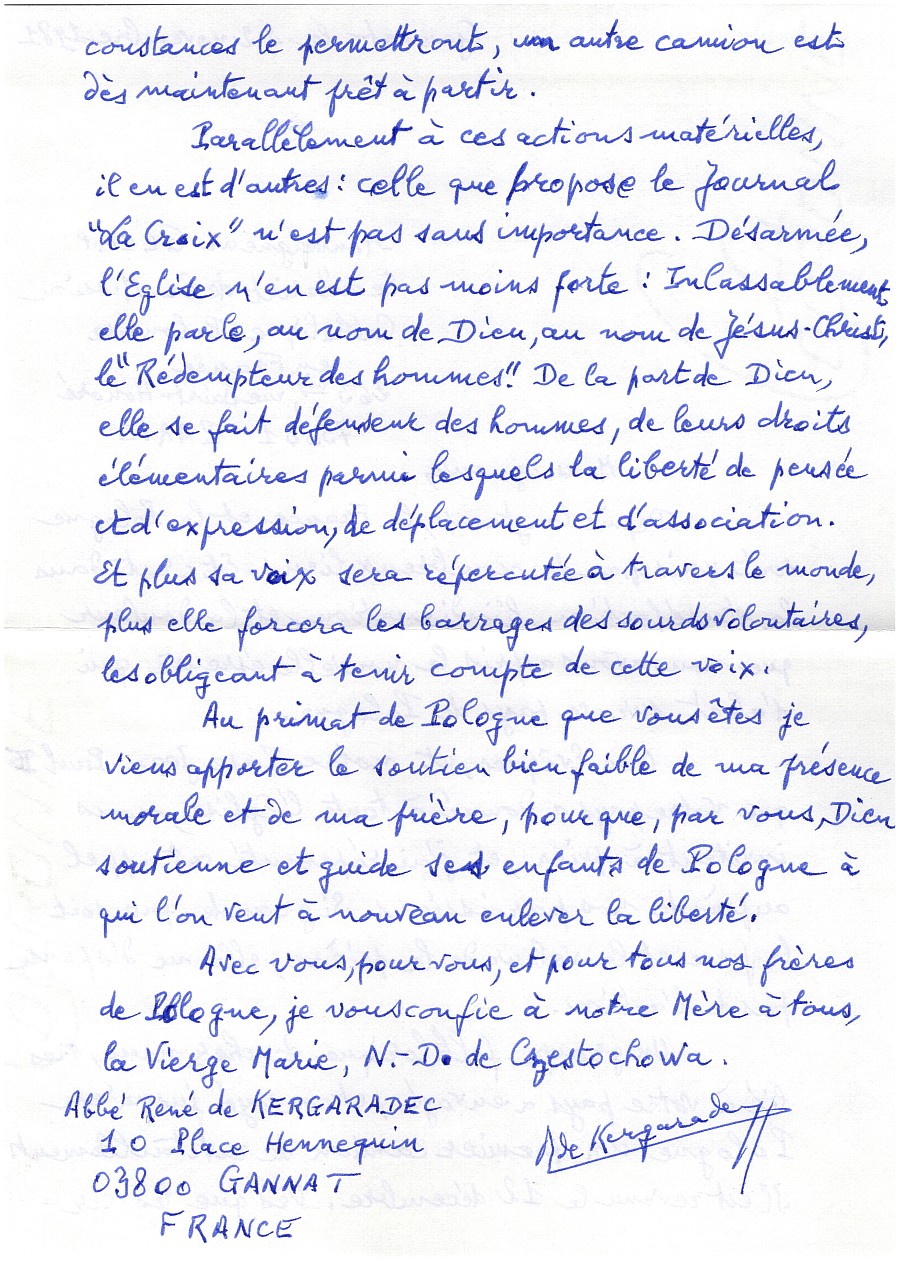 constances le permettront, un autre camion est
dès maintenant prêt à partir.
Parallèlement à ces actions matérielles,
il en est d'autres : celle que propose le Journal
"La Croix" n'est pas sans importance. Désarmée,
l'Eglise n'en est pas moins forte : Inlassablement
elle parle, au nom de Dieu, au nom de Jésus-Christ,
le "Rédempteur des hommes". De la part de Dieu,
elle se fait défenseur des hommes, de leurs droits
élémentaires parmi lesquels la liberté de pensée
et d'expression, de déplacement et d'association.
Et plus sa voix sera répercutée à travers le monde,
plus elle forcera les barrages des sourds volontaires,
les obligeant à tenir compte de cette voix.
Au primat de Pologne que vous êtes je
viens apporter le soutien bien faible de ma présence
morale et de ma prière, pour que, par vous, Dieu
soutienne et guide ses enfants de Pologne à
qui l'on veut à nouveau enlever la liberté.
Avec vous, pour vous, et pour tous nos frères
de Pologne, je vous confie à notre Mère à tous,
la Vierge Marie, N.-D. de Czestochowa.
Abbé René de KERGARADEC
10 Place Hennequin
03800 GANNAT
FRANCE
R de Kergaradec